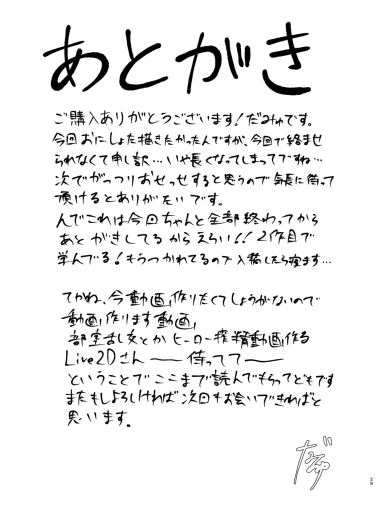 あとがき
ご購入ありがとうございます！だみゅです。
今回おにしょた描きたかったんですが、今回で終ませ
られなくて申し訳…いや長くなってしまってですね…
次でがっつりおせっせすると思うので気長に待って
頂けるとありがたいです。
んでこれは今回ちゃんと全部終わってから
あとがきしてるからえらい！！2作目で
学んでる！もうつかれてるので入稿したら寝ます…
てかね、今動画作りたくてしょうがないので
動画作ります動画
部室乱交とかヒーロー搾精動画作る
Live2Dさん 待ってて
ということでここまで読んでもらってどもです
またもしよろしければ次回もお会いできればと
思います。
29